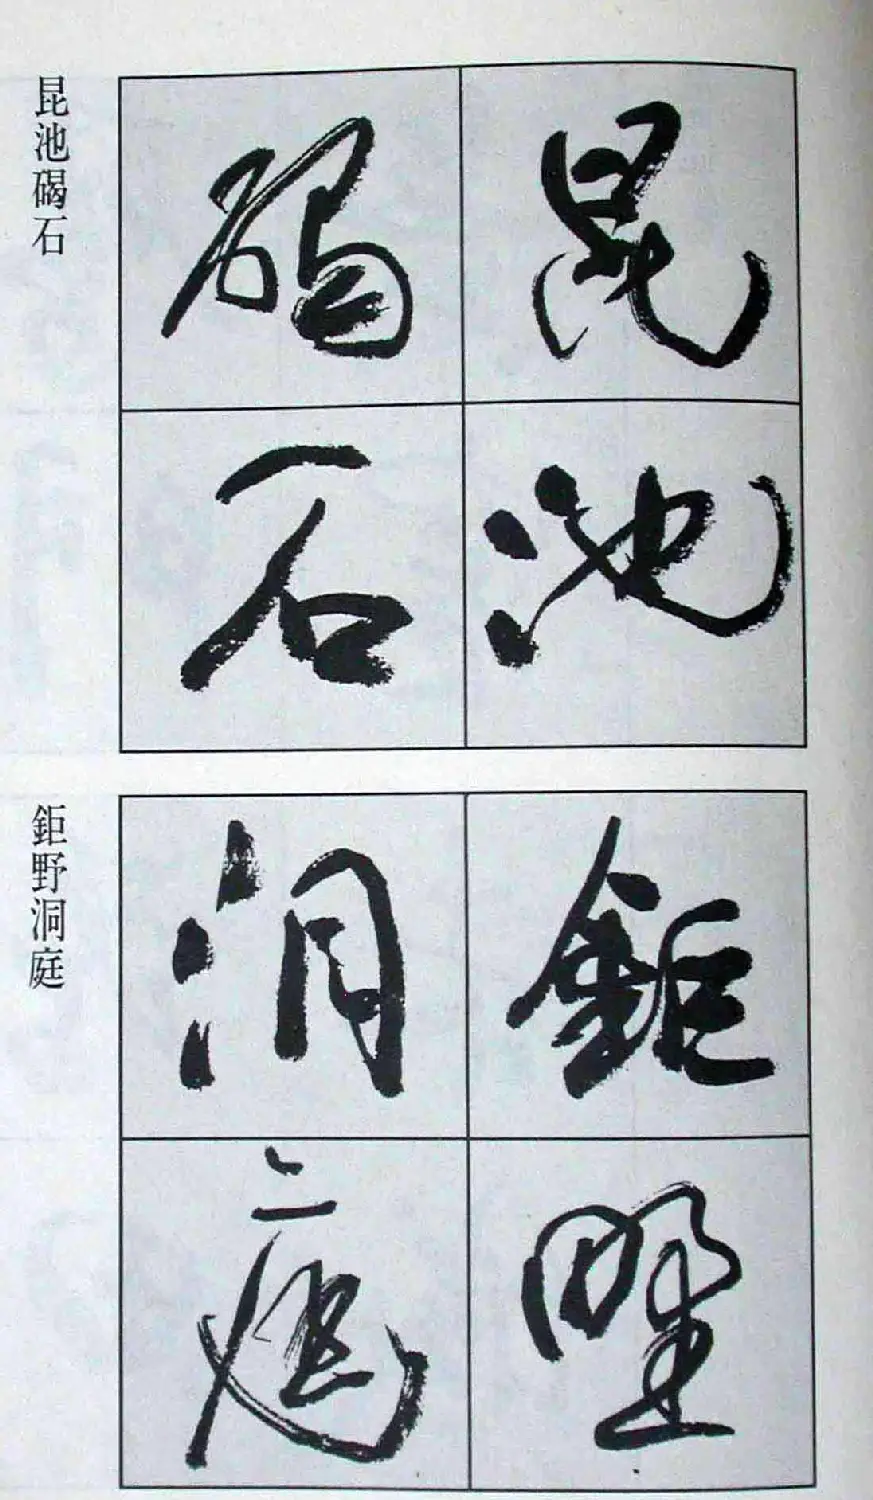 昆池
碣石
昆池碣石
鉅野
洞庭
鉅野洞庭